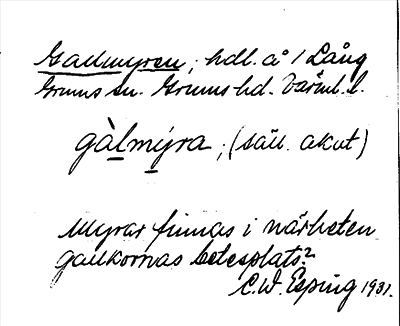 Gallmyren; hdl. å 1 Lång
Grums sn. Grums hd. Värml. l.
gàlmýra; (säll. akut)
Myrar finnas i närheten
gallkornas betesplats?
C.W. Esping 1931.